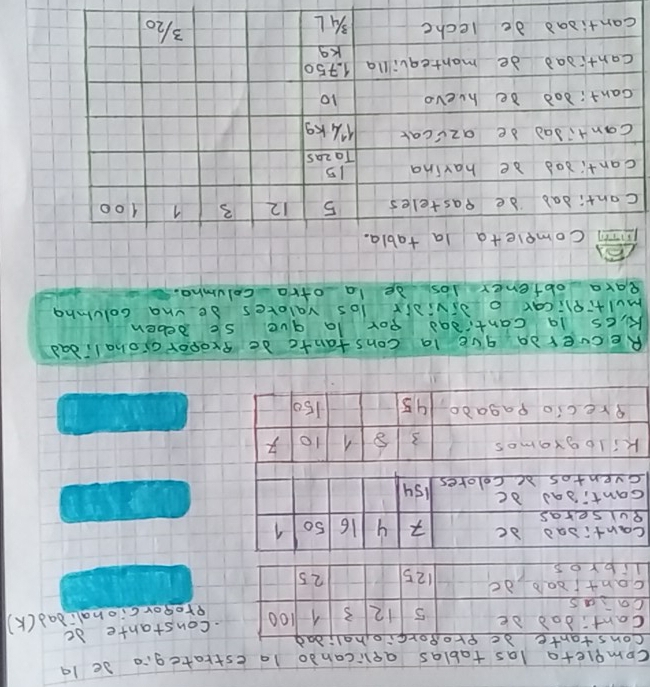 Completa las tablas aplicando la estrategia de la
constante de proporcionalidad
Cantidad de cajas 5 12 3 1 100
Cantidad de libros 125 25
• Constante de
Proporcionalidad (K)
Cantidad de Pulseras 7 4 16 50 1
Cantidad de cuentas de colores 154
Kilogramos 3 8 1 10 7
Precio Pagado 45 150
Recuerda que la constante de Proporcionalidad
K, es la cantidad por la que se deben
multiplicar o dividir los valores de una columna
para obtener los de la otra columna.
Completa la tabla.
Cantidad de Pasteles 5 12 3 1 100
Cantidad de harina 15 Tazas
Cantidad de azúcar 1 1/4 Kg
Cantidad de huevo 10
Cantidad de mantequilla 1.750 Kg
Cantidad de leche 3/4 L 3/20